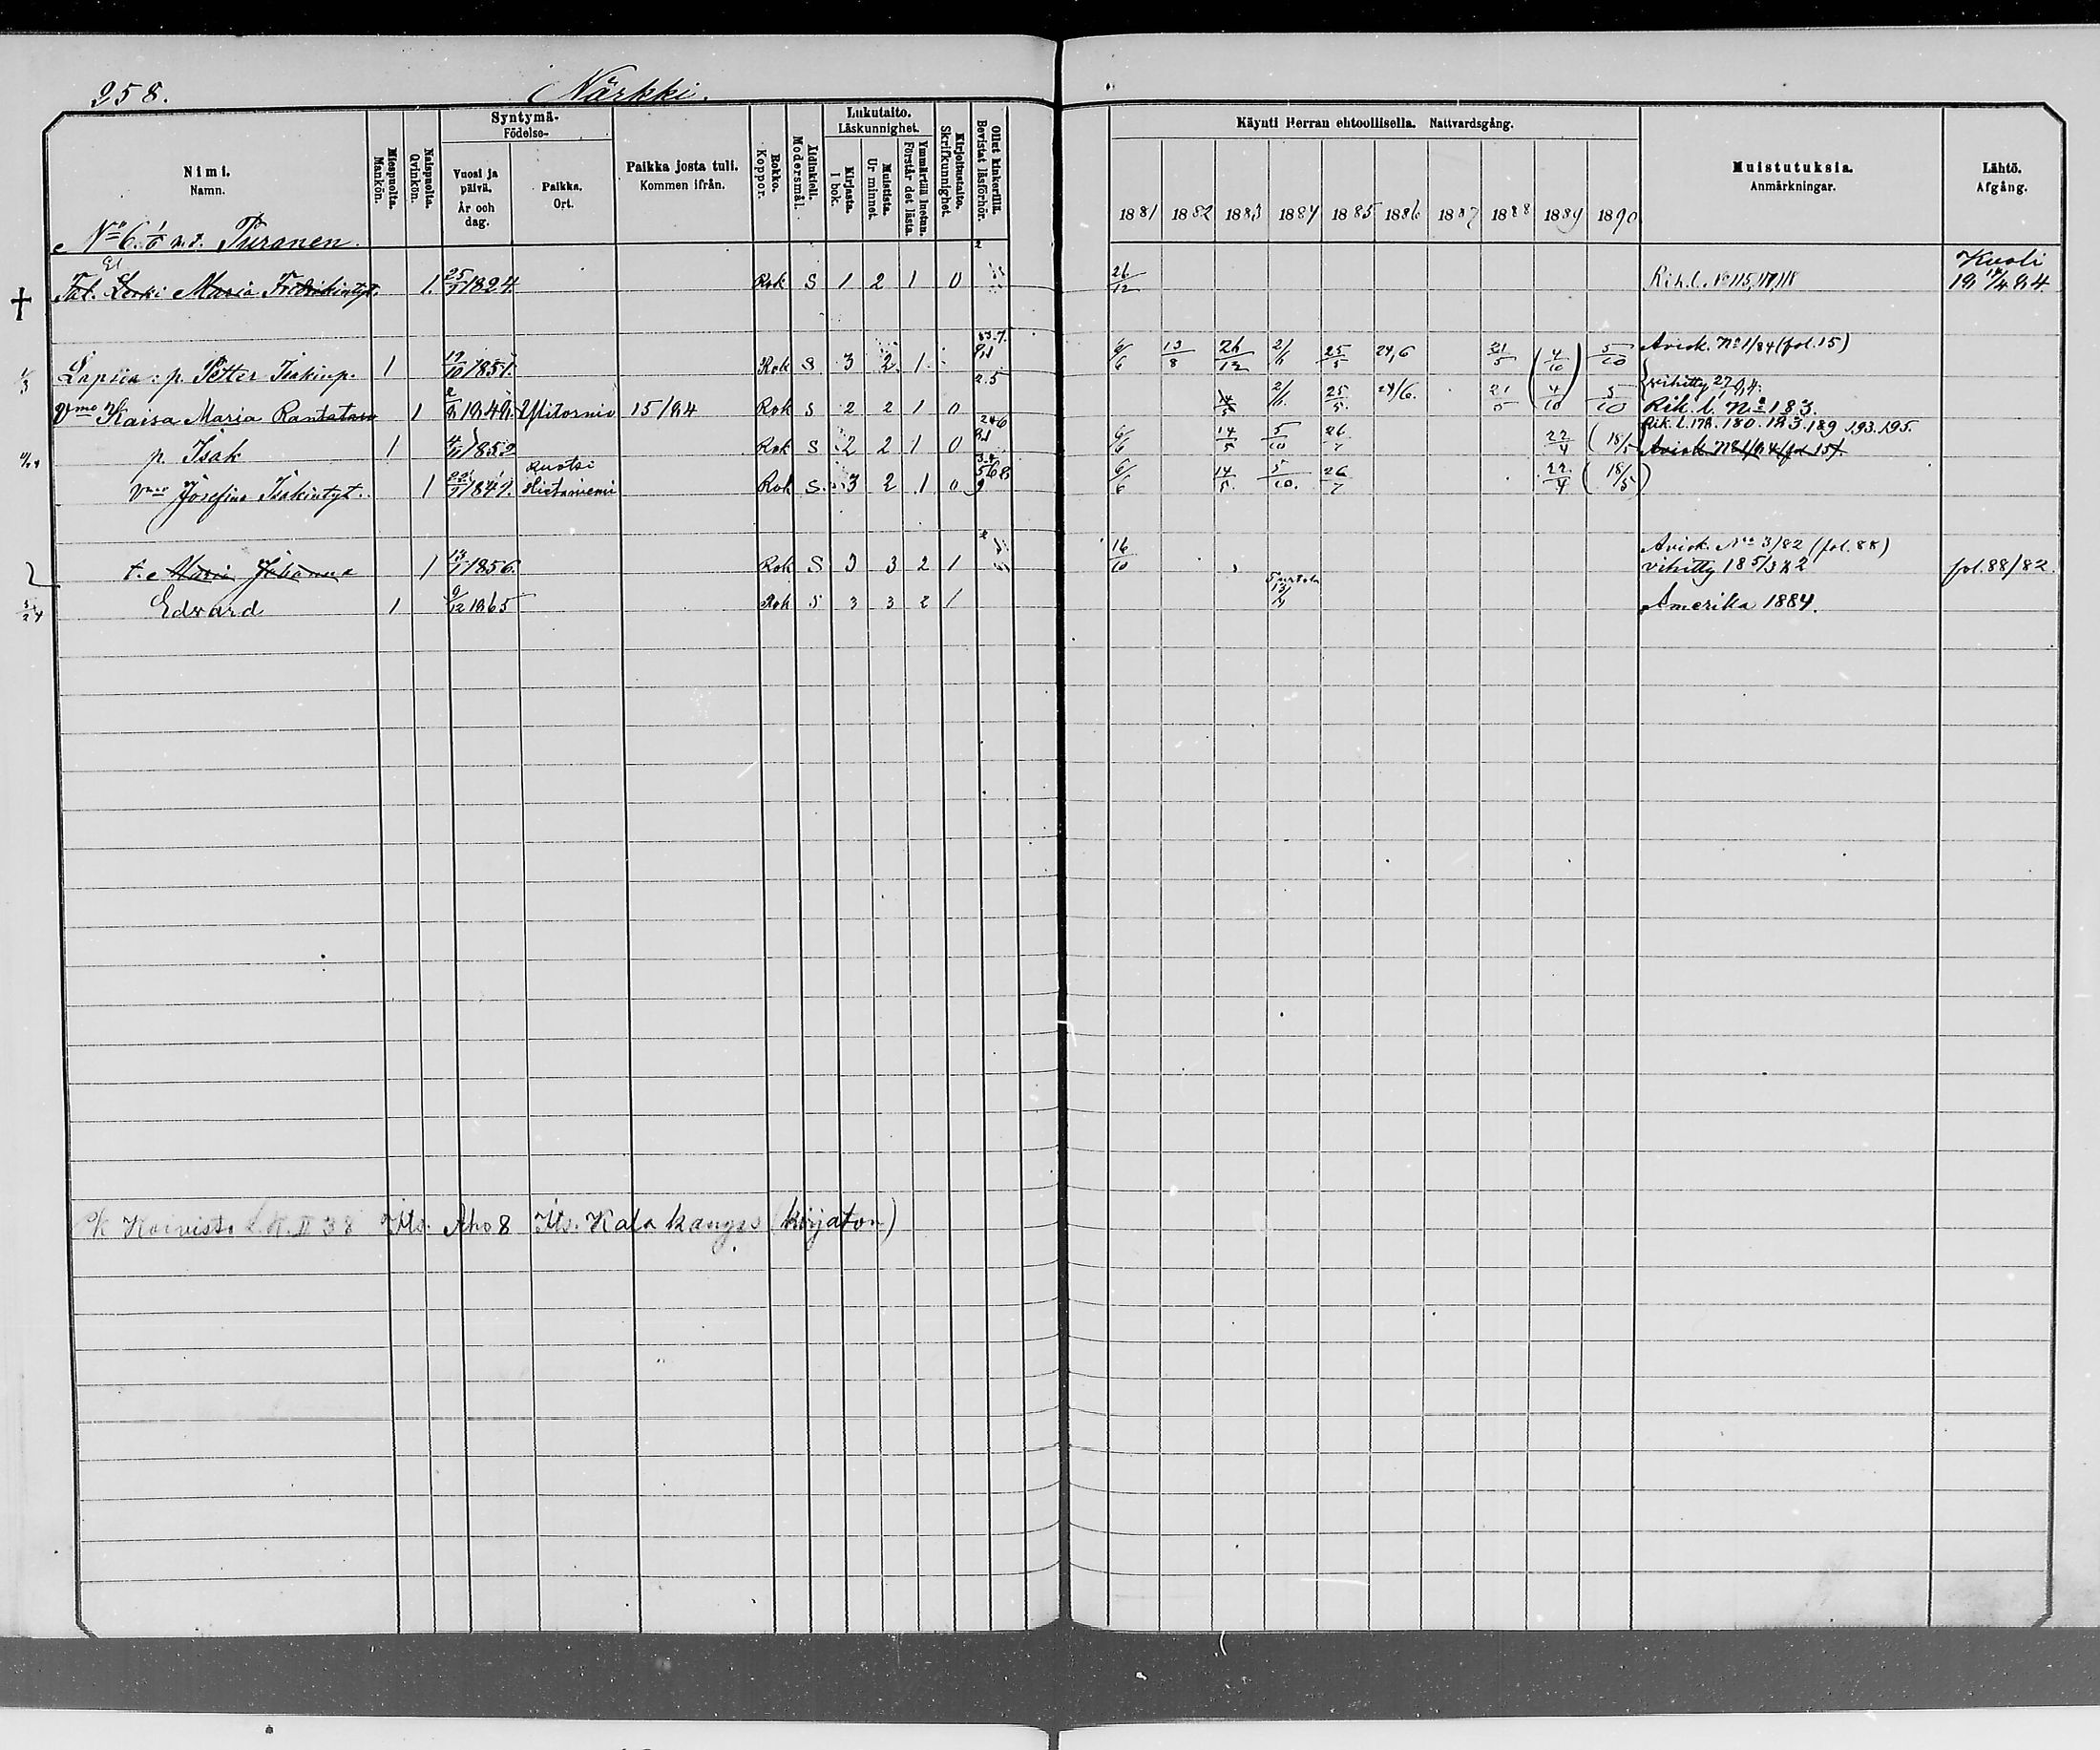 258. Närkki.
Nimi. Namn.
Miespuolia. Mankön.
Naispuolia. Qvinkön.
Syntymä- Födelse-
Vuosi ja päivä. År och dag.
Paikka. Ort.
Paikka josta tuli. Kommen ifrån.
Rokko. Koppor.
Äidinkieli. Modersmål.
Lukutaito. Läskunnighet.
Kirjasta. I bok.
Muistista. Ur minnet.
Ymmärtää luetun. Förstår det lästa.
Kirjoitustaito. Skrifkunnighet.
Ollut kinkerillä. Bevistat läsförhör.
Käynti Herran ehtoollisella. Nattvardsgång.
1881 1882 1883 1884 1885 1886 1887 1888 1889 1890
Muistutuksia. Anmärkningar.
Lähtö. Afgång.
No 6. Turanen.
Tal. Leski Maria Fredrikintyt. 1. 25/1 1824 Rok S 1 2 1 0 26/12 Rik.l. No 115, Kuoli
Lapsia: p. Petter Isakinp. 1 17/10 1851 Rok S 3 2 1 6/6 13/8 26/12 25/5 24/6 21/5 (4/10) 5/10 Aviok. No 1/84 (fol. 15)
Vmo Kaisa Maria Rantatalo 1 Ylitornio 15/84 Rok S 2 2 1 0 14/5 25/5. 24/6. 21/5 4/10 5/10 vihitty Rik. l. No 183.
p. Isak 1 Rok S 2 2 1 0 6/6 14/5 5/10 26/7 22/4 (18/5 Rik. l. 178. 180. 183. 189. 193. 195. Aviok. No 1/84 (fol. 15).
Vmo Josefina Isakintyt. 1 Ruotsi Hietaniemi Rok S. 3 2 1 0 6/6 14/5. 5/10. 26/7 22/4 (18/5)
t. Maria Johanna 1 13/1 1856. Rok S 3 3 2 1 16/10 Aviok. No 3/82 (fol. 88) vihitty 18 5/3 82 fol. 88/82.
Edvard 1 9/12 1865 Rok S 3 3 2 1 Amerika 1884.
Koivisto L.K. II 38 Its. Aho 8 Its. Kala kangas (kirjaton)